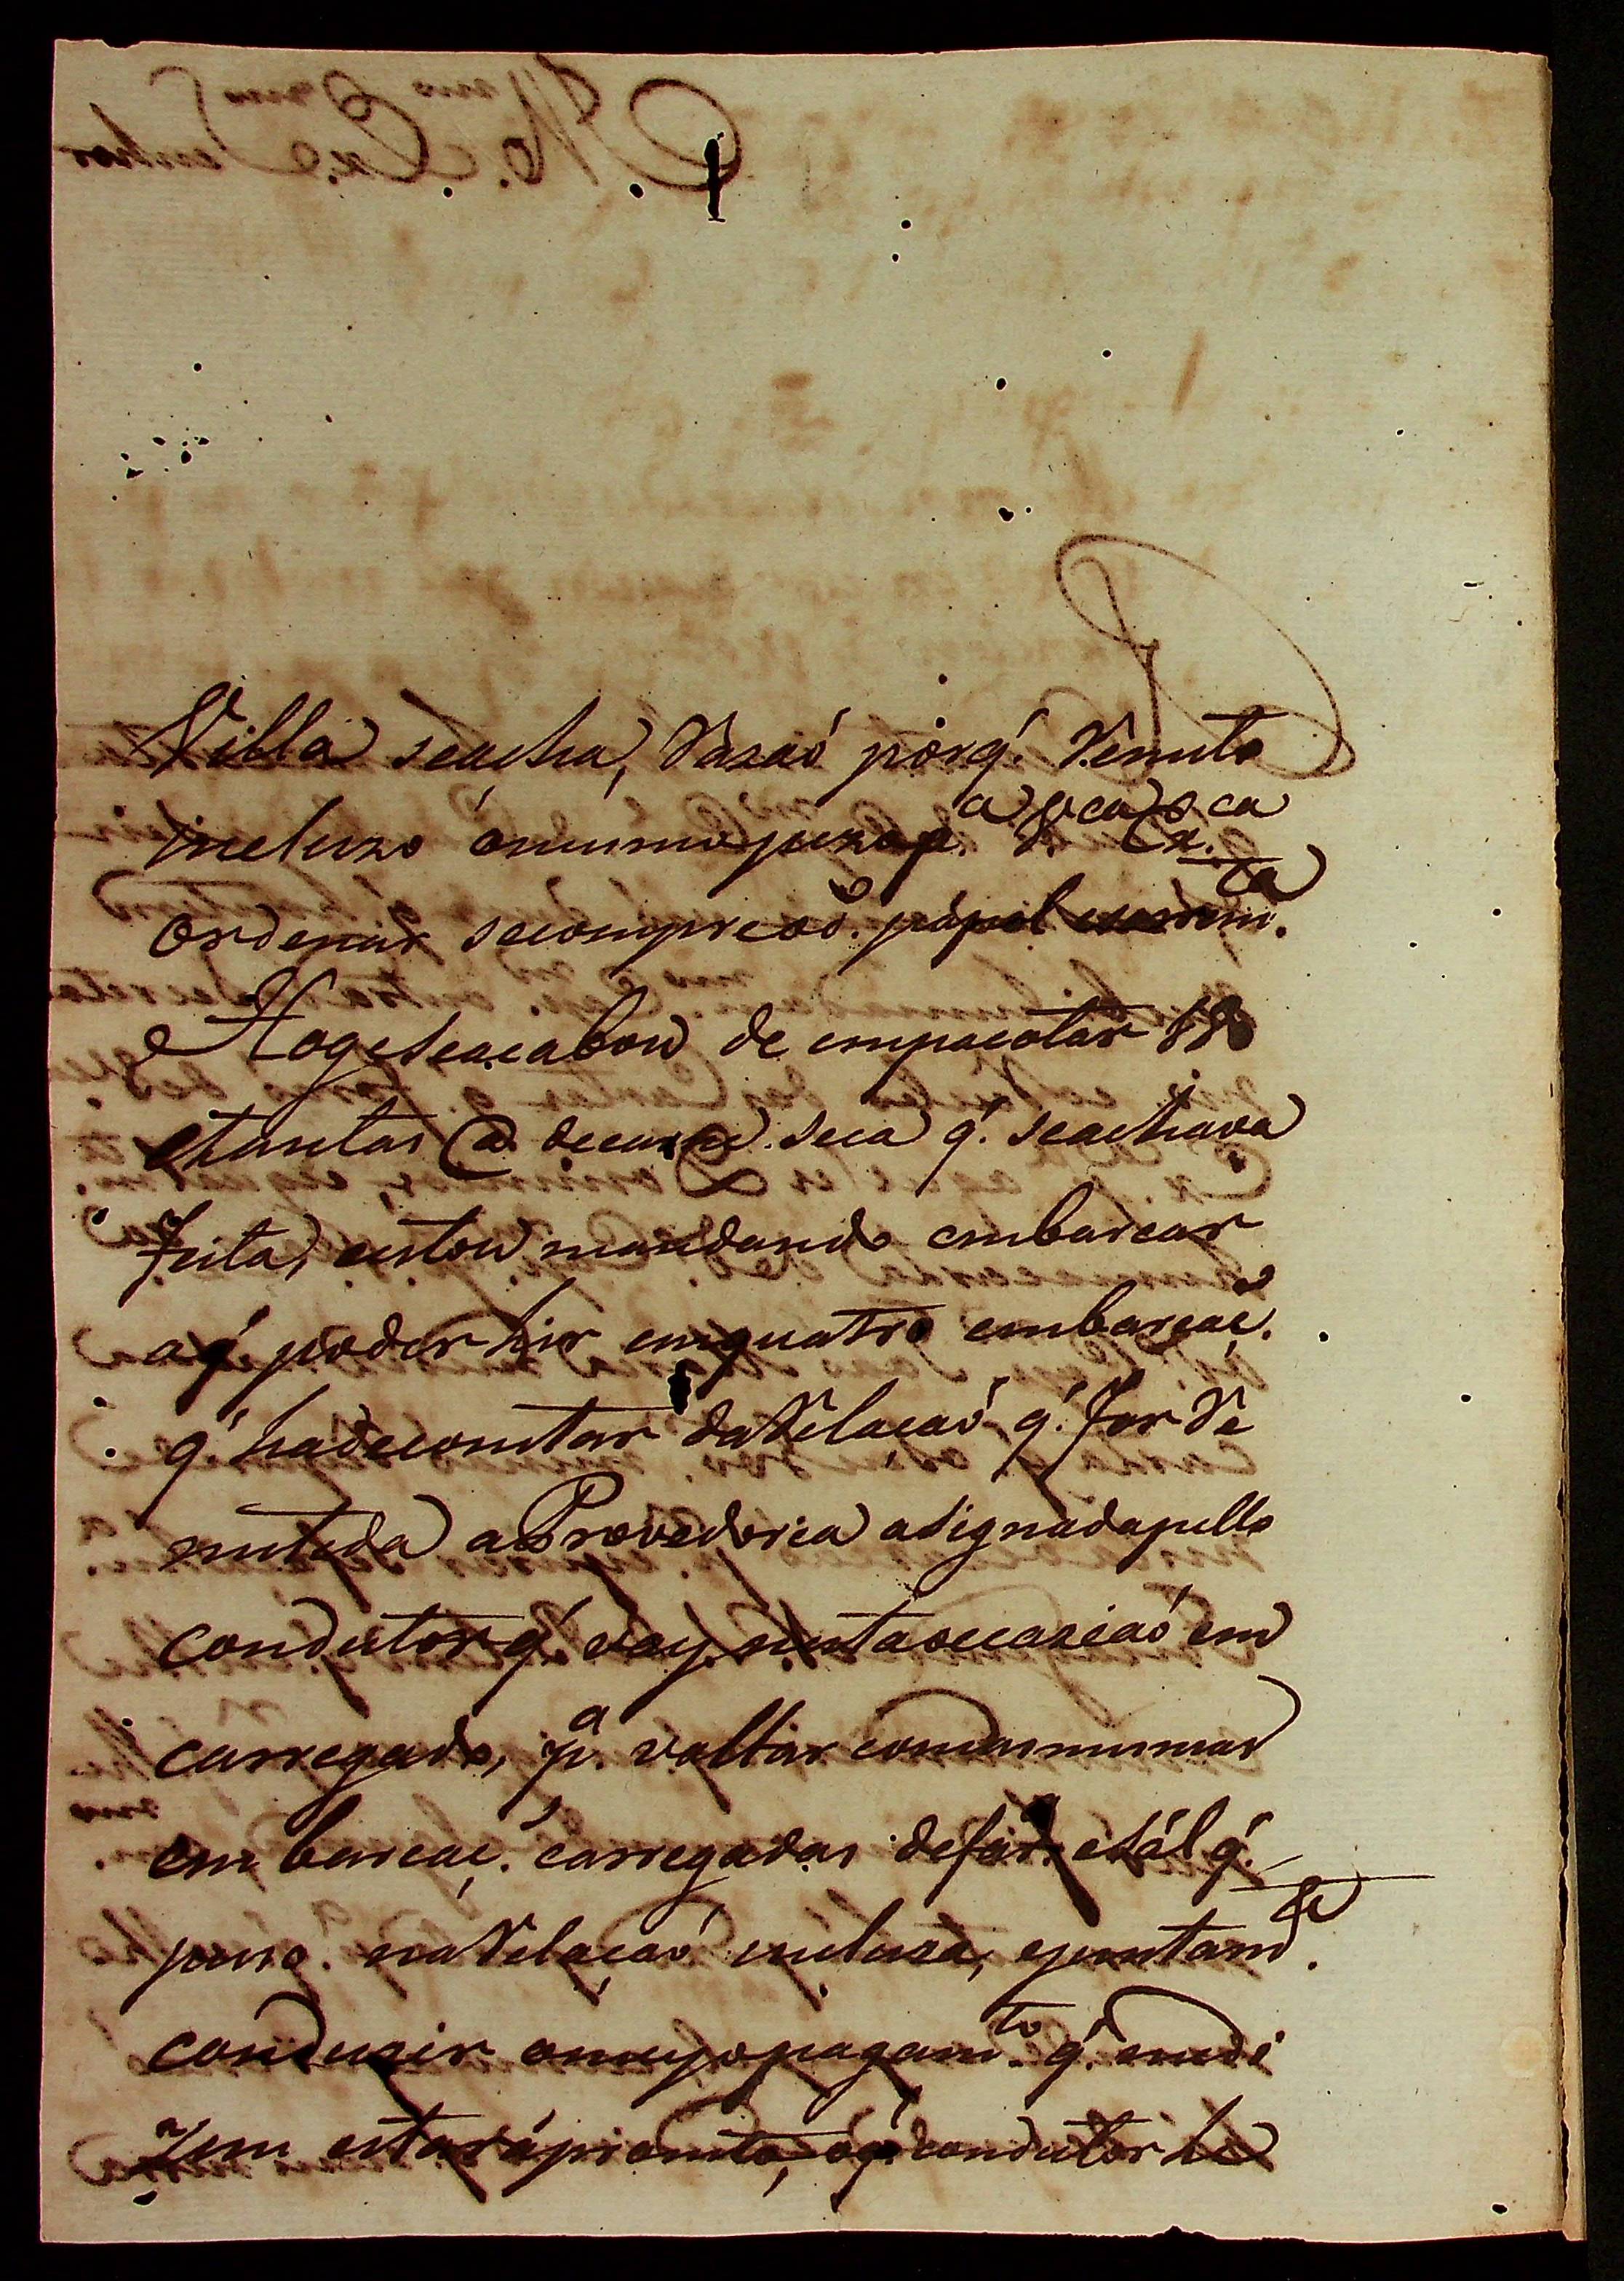 Villa seacha, Razaõ porq̃. Remeto
incluzo omesmo juizo p.ª V. Ex.ca
Ordenar secompre ao d.o papel
Hoge seacabou de empacotar 180
etantas @ decarne seca q̃. seachava
feita, estou mandando embarcar
aq̃ poder hir emquatro embarcaç.s
q̃ hadeconstar daRelaçaõ q̃. for Re
metida aProvedoria asignadapello
condutor q̃ vay nestaoccaziaõ em
carregado, p.ª voltar comasmesmas
embarcaç.s carregadas defar.ª esál q̃.
pesso. naRelaçaõ incluza, ejuntam.te
conduzir omeyopagam.to q̃. medi
zem estarápromto, oq̃ condutor he